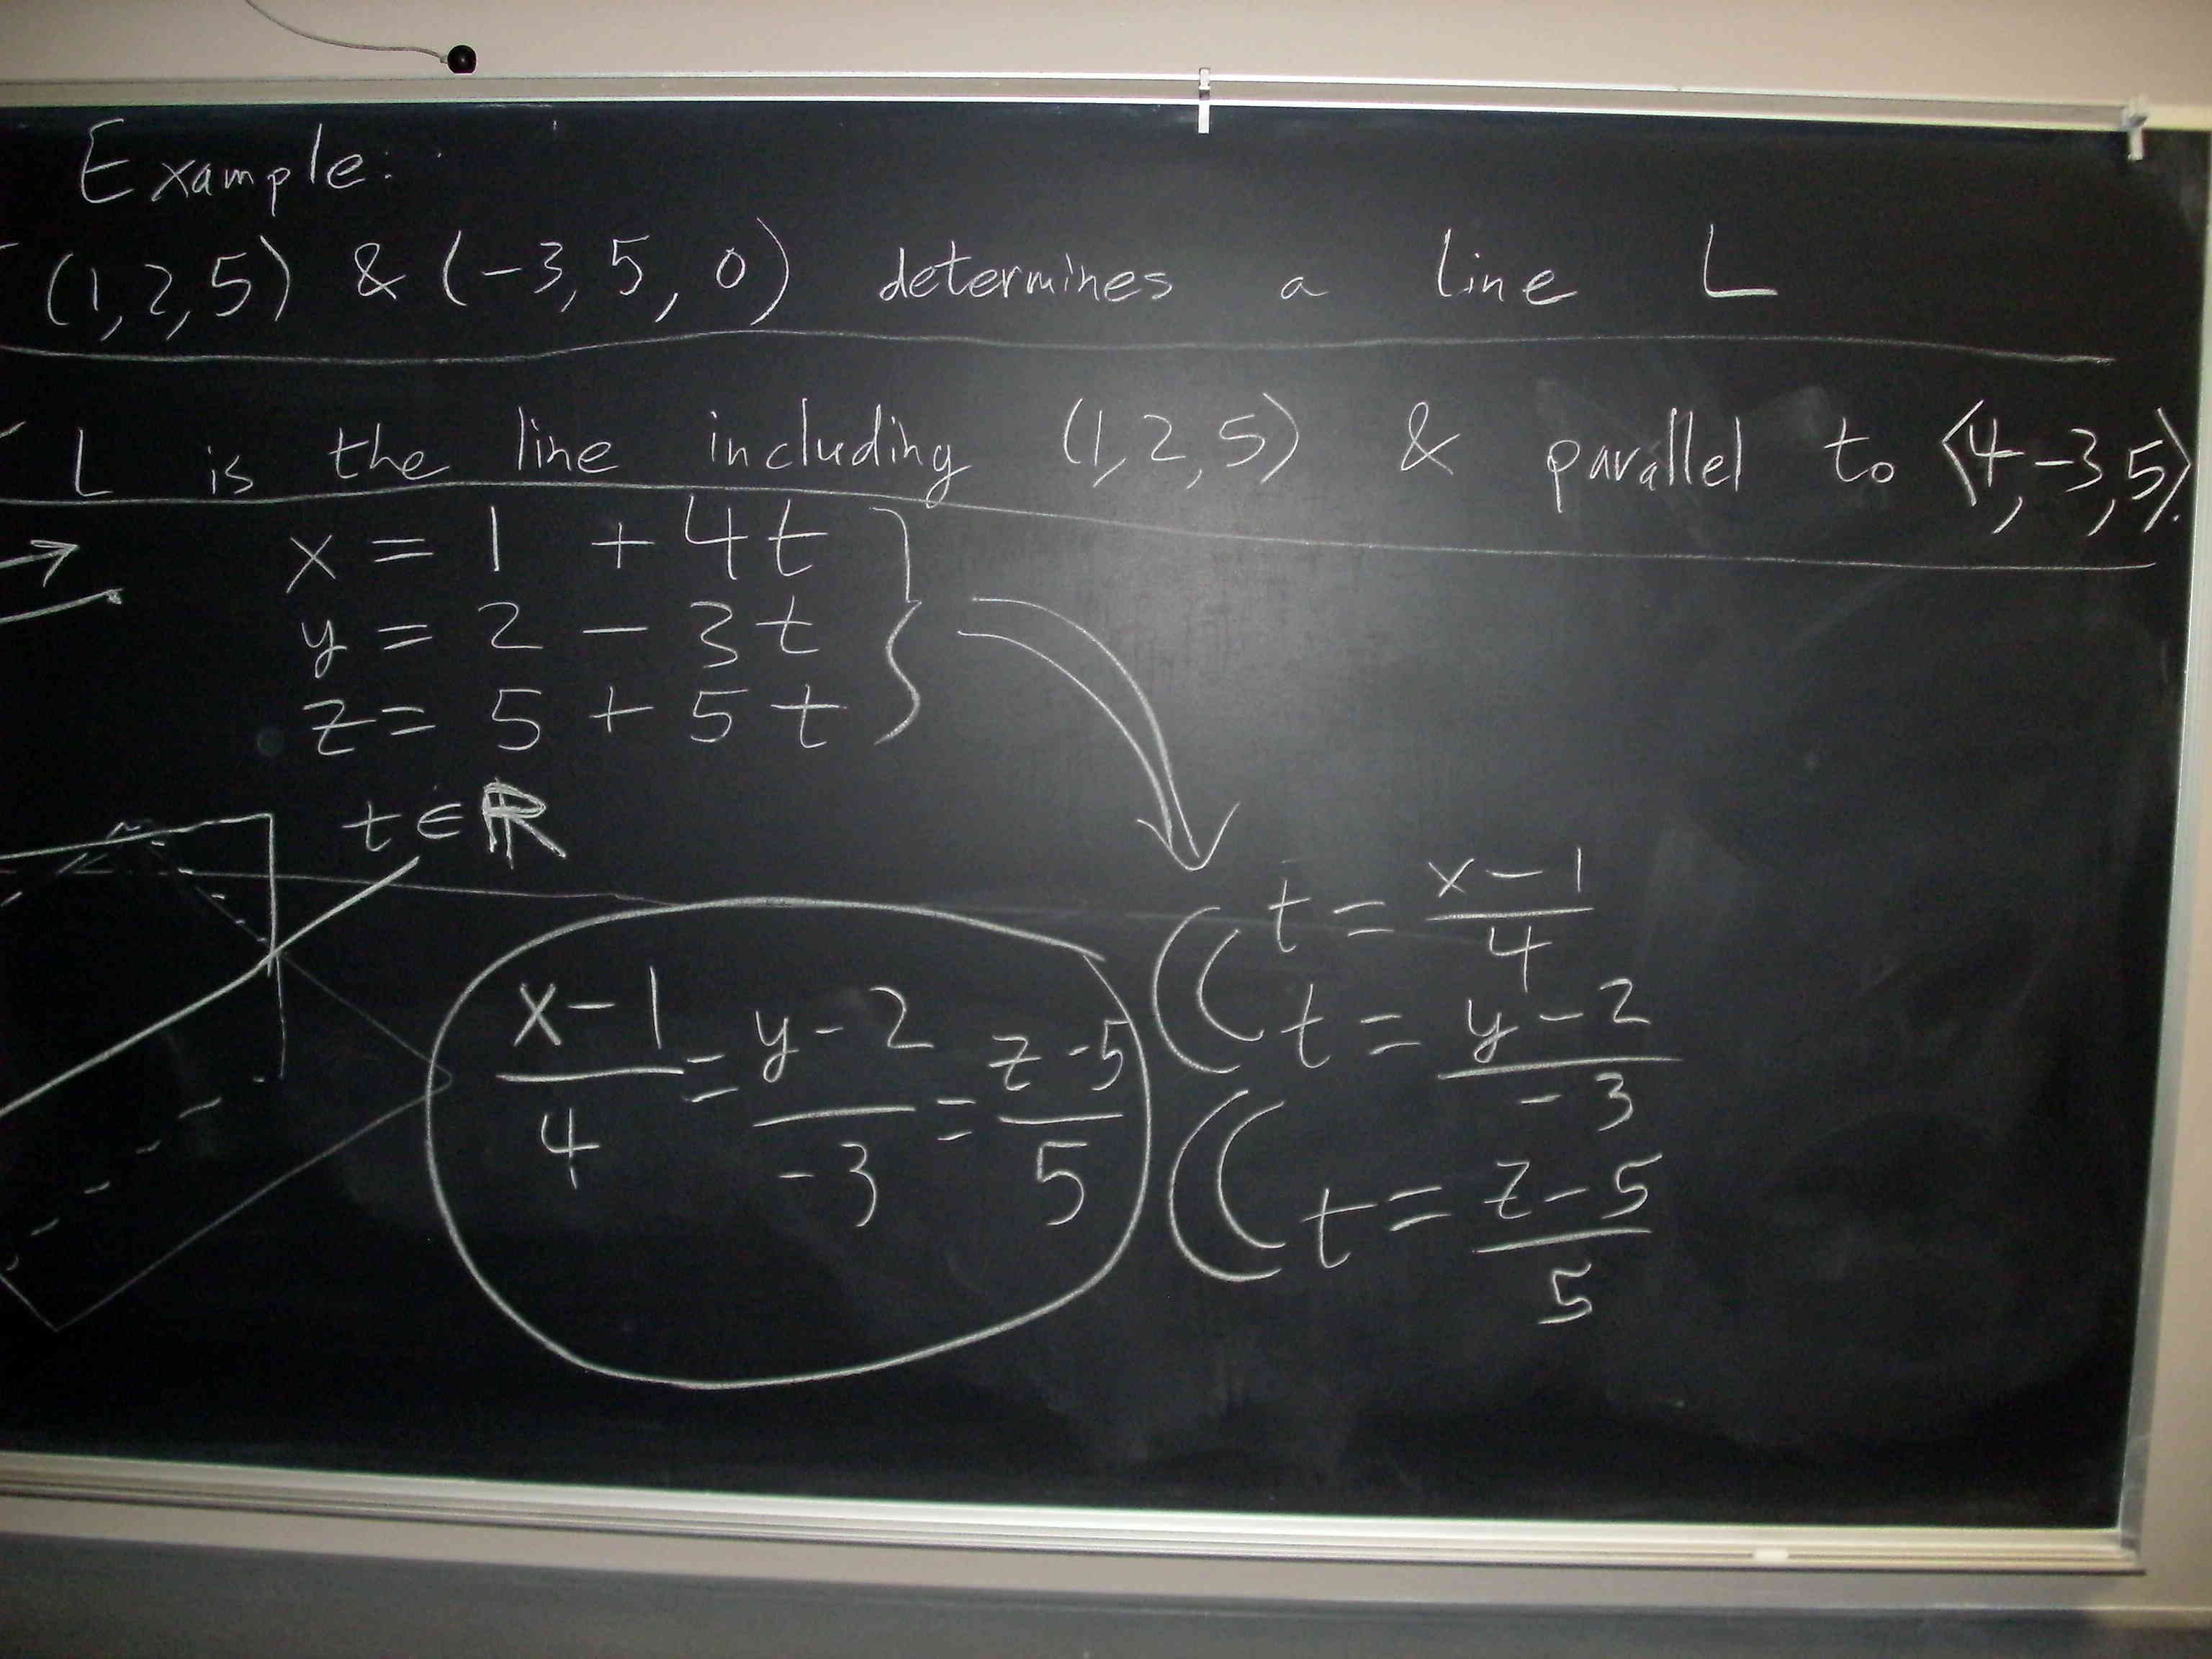 Example:
(1,2,5) & (-3,5,0) determines a line L
L is the line including (1,2,5) & parallel to ⟨4,-3,5⟩.
x = 1 + 4t
y = 2 - 3t
z = 5 + 5t
t ∈ ℝ
t = (x-1)/4
t = (y-2)/-3
t = (z-5)/5
(x-1)/4 = (y-2)/-3 = (z-5)/5